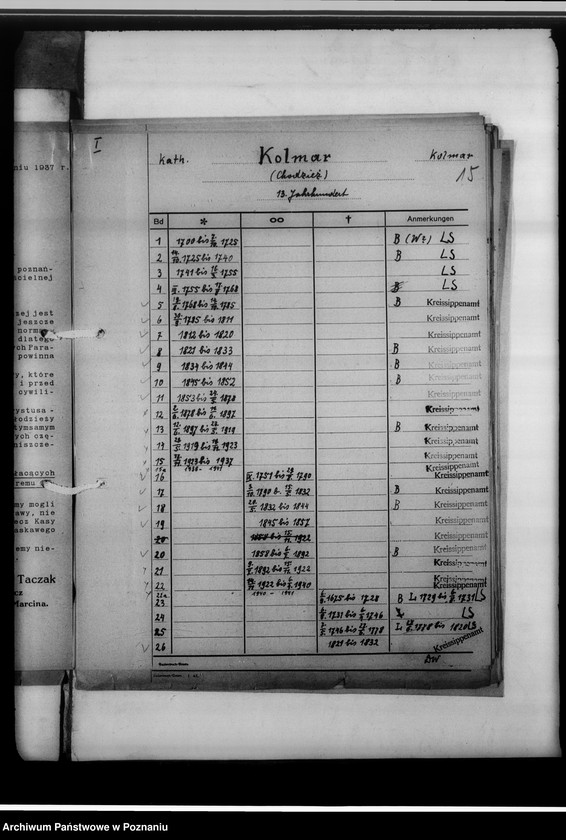 niu 1937 r.
poznań-
cielnej
zej jest
jeszcze
norma
dlatego
ych Para-
powinna
y, które
i przed
cywili-
ystusa -
rodzieży
tymsamym
ych czę-
niszcze-
kacących
remu
my mogli
awy, nie
ecz Kasy
askawego
emy nie-
Taczak
cz
Marcina.
I
kath. Kolmar Kolmar
(Chodzież) 15
13. Jahrhundert
Bd * ∞ † Anmerkungen
1 1700 bis 1725 B (W?) LS
2 1725 bis 1740 B LS
3 1741 bis 1755 LS
4 1755 bis 1768 LS
5 1768 bis 1785 B Kreissippenamt
6 1785 bis 1811 Kreissippenamt
7 1812 bis 1820 Kreissippenamt
8 1821 bis 1833 B Kreissippenamt
9 1834 bis 1844 B Kreissippenamt
10 1845 bis 1852 B Kreissippenamt
11 1853 bis 1878 Kreissippenamt
12 1878 bis 1897 Kreissippenamt
13 1897 bis 1919 B Kreissippenamt
14 1919 bis 1923 Kreissippenamt
15 1923 bis 1937 Kreissippenamt
16 1751 bis 1790 Kreissippenamt
17 1790 b. 1832 B Kreissippenamt
18 1832 bis 1844 B Kreissippenamt
19 1845 bis 1857 Kreissippenamt
20 1858 bis 1922 Kreissippenamt
20 1858 bis 1892 B Kreissippenamt
21 1892 bis 1922 Kreissippenamt
22 1922 bis 1940 Kreissippenamt
22a 1940 - 1941 Kreissippenamt
23 1675 bis 1728 B L 1729 bis 1731 LS
24 1731 bis 1746 LS
25 1746 bis 1778 L 1778 bis 1820 LS
26 1821 bis 1832 Kreissippenamt
Archiwum Państwowe w Poznaniu